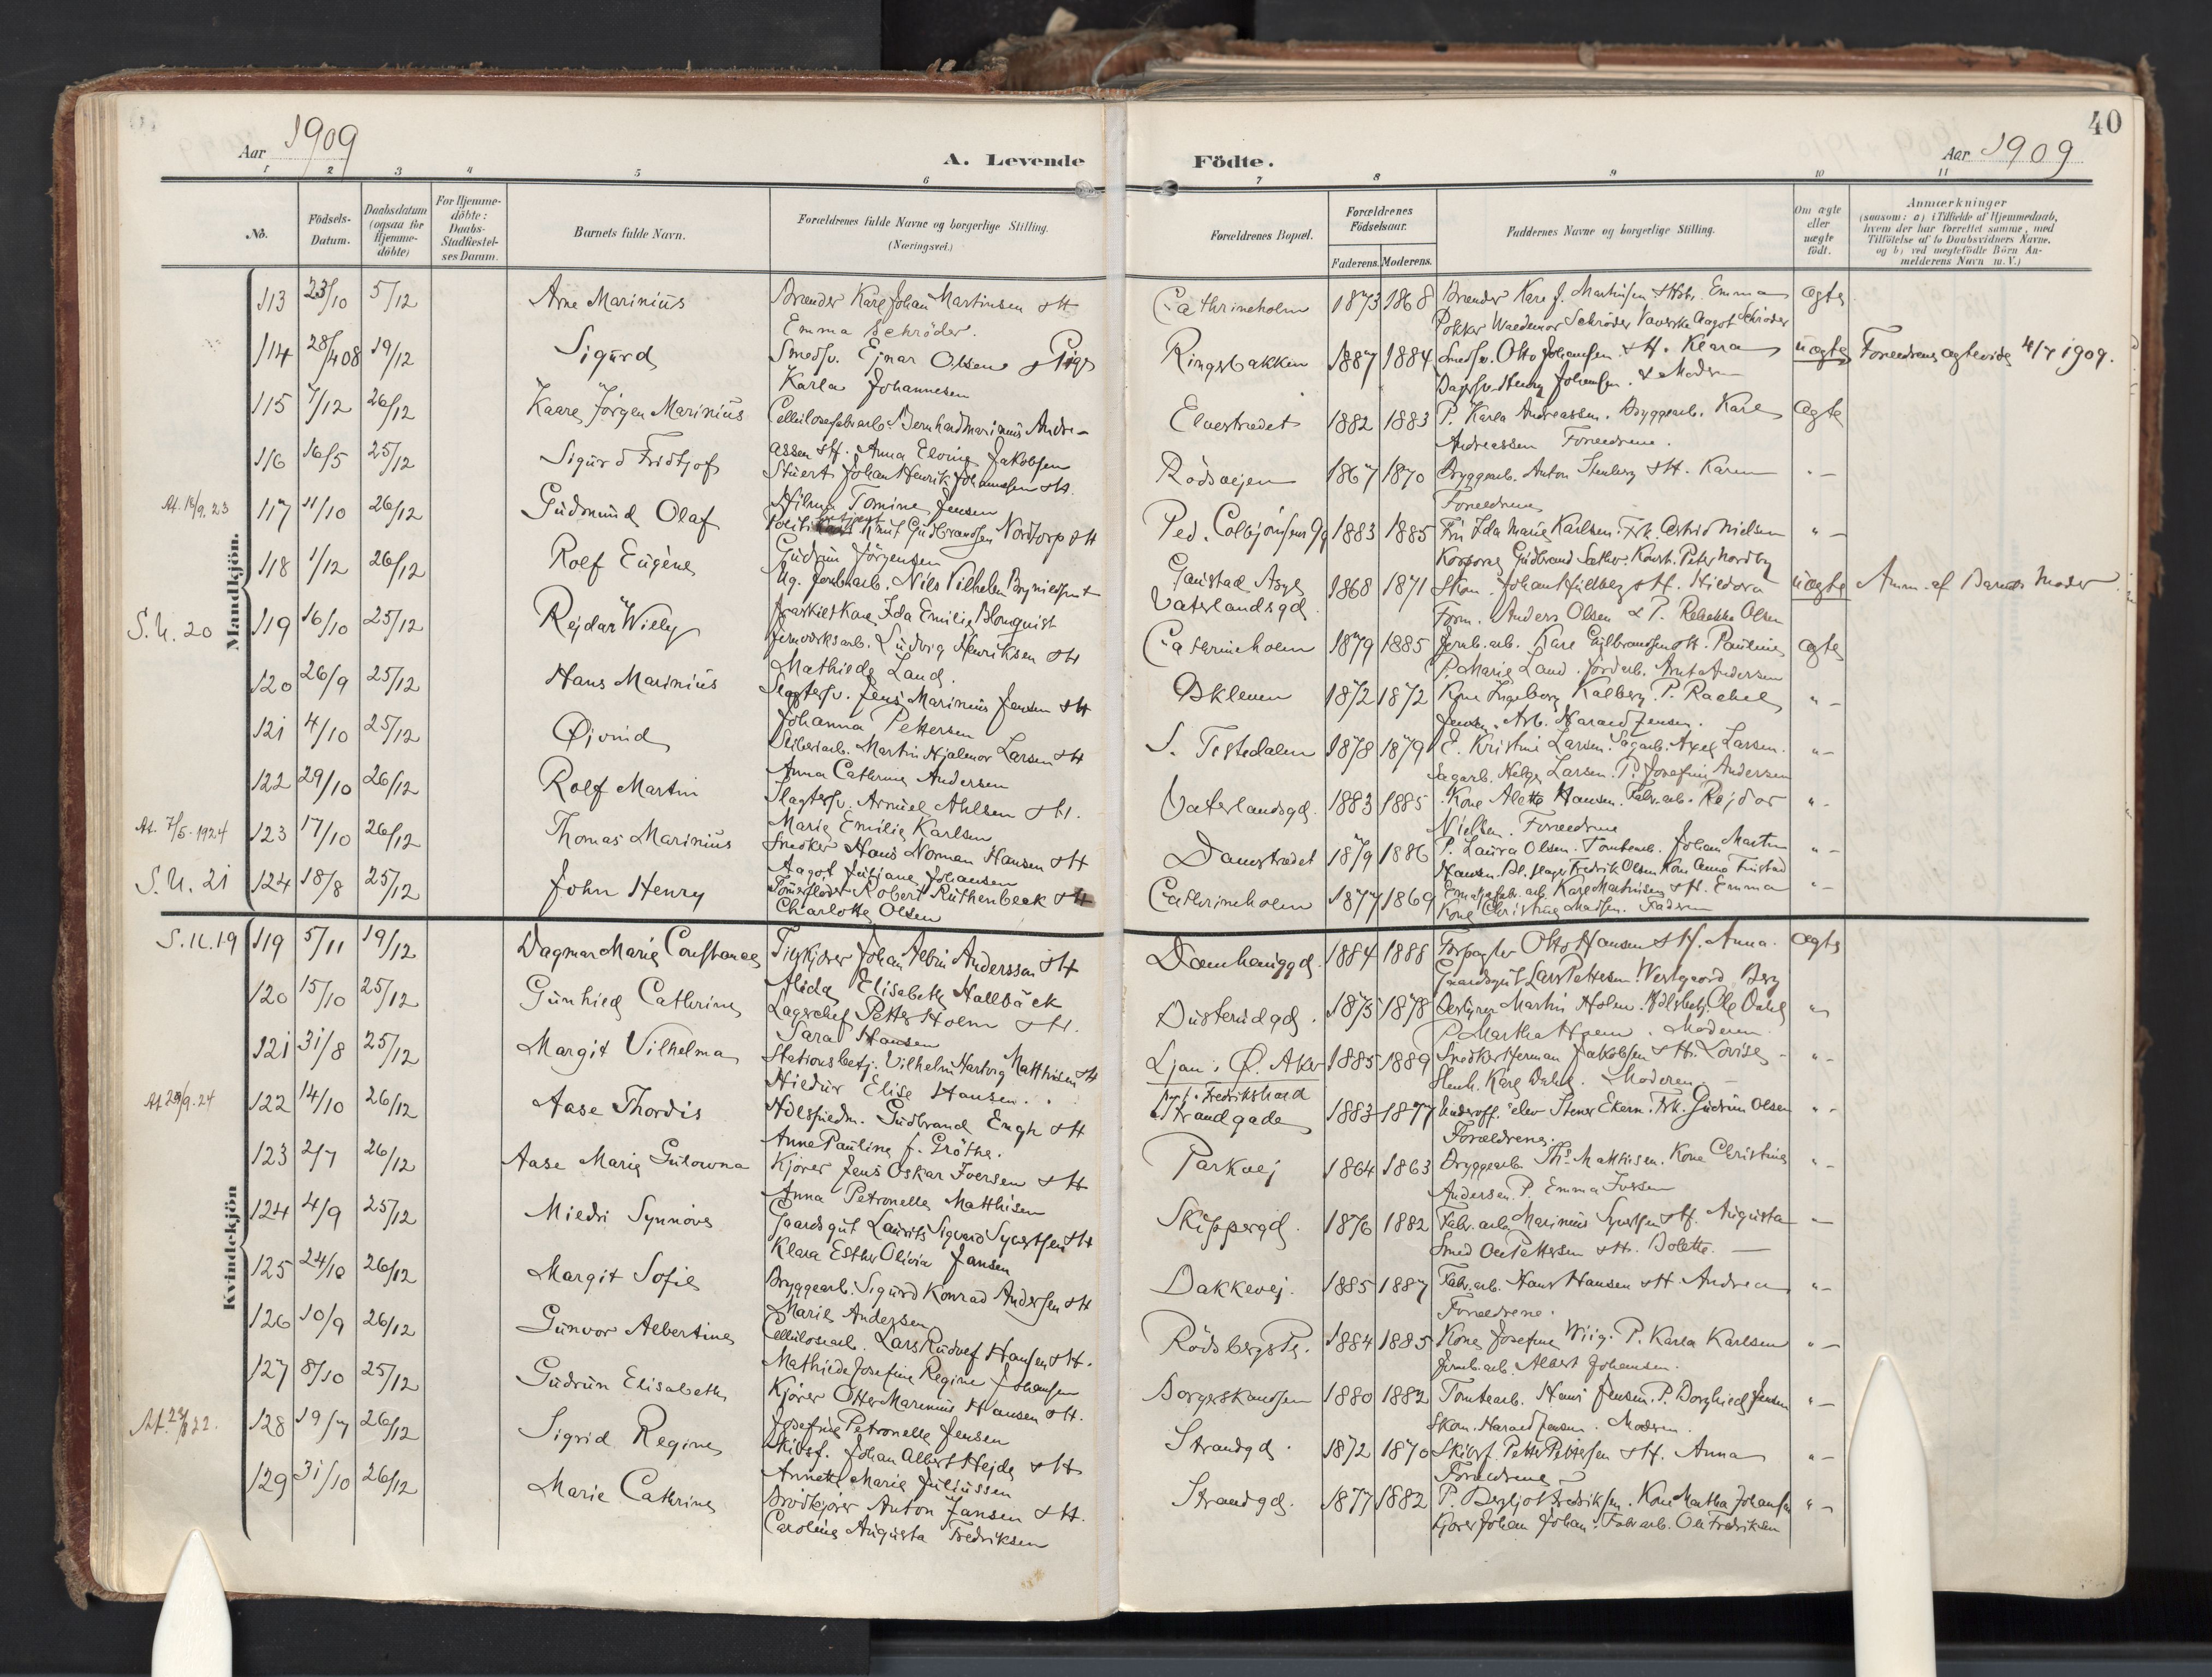 40
Aar 1909
A. Levende Födte.
Aar 1909
1 2 3 4 5 6 7 8 9 10 11
No.
Födsels-
Datum.
Daabsdatum
(ogsaa for
Hjemme-
döbte)
For Hjemme-
döbte:
Daabs-
Stadfæstel-
ses Datum.
Barnets fulde Navn.
Forældrenes fulde Navne og borgerlige Stilling.
(Næringsvei.)
Forældrenes Bopæl.
Forældrenes
Födselsaar.
Faderens. Moderens.
Faddernes Navne og borgerlige Stilling.
Om ægte
eller
uægte
födt.
Anmærkninger
(saasom: a) i Tilfælde af Hjemmedaab,
hvem der har forrettet samme, med
Tilföielse af to Daabsvidners Navne,
og b) ved uægtefödte Börn An-
melderens Navn m. V.)
Mandkjön.
113 23/10 5/12 Arne Marinius Brænder Karl Johan Martinsen & H Cathrineholm 1873 1868 Brænder Karl J. Martinsen & Hst. Emma ægte
Emma Schröder. Waldemar Schröder Aagot Schröder
114 28/4 08 19/12 Sigurd Smedsv. Ejnar Olsen & Pige Ringsbakken 1887 1884 Smedsv. Otto Johansen & H. Klara uægte Forældrene ægteviet 4/7 1909.
Karla Johannesen Henry Johansen. & Moderen
115 7/12 26/12 Kaare Jörgen Marinius Cellulosefabrarb. Bernhard Marinius Andre- Elvestrædet 1882 1883 P. Karla Andreassen. Bryggearb. Karl ægte
assen & H. Anna Elvine Jakobsen Andreassen Forældrene.
116 16/5 25/12 Sigurd Fridtjof Stuert Johan Henrik Johannesen & H. Rödsvejen 1867 1870 Bryggearb. Anton Stenberg & H. Karen " —
Hilma Tomine Jensen Forældrene
At. 18/9. 23 117 11/10 26/12 Gudmund Olaf Politi Knut Gudbrandsen Nordtorp & H Ped. Colbjörnsens Gd 1883 1885 Fru Ida Marie Karlsen. Frk. Astrid Nielsen " —
Gudrun Jörgensen Korporal Gudbrand Sæther. Konst. Peter Nordby
118 1/12 26/12 Rolf Eugène Ug. Jernbarb. Nils Vilhelm Gaustad Asyl 1868 1871 Skom. Johan Hillberg & H. Hildora uægte Anm. af Barnets Moder
fraskilt Kone Ida Emilie Blomquist Vaterlandsgd. Form. Anders Olsen & P. Rebekka Olsen
S. U. 20 119 16/10 25/12 Rejdar Willy Jernværksarb. Ludvig Henriksen & H Cathrineholm 1879 1885 Jernb. arb. Karl Gulbrandsen & H. Pauline ægte
Mathilde Lund. P. Marie Lund. Jordarb. Andersen
120 26/9 25/12 Hans Marinius Slagtersv. Jens Marinius Jensen & H Asklund 1872 1872 Kone Ingeborg Kalberg. P. Rachel " —
Johanna Pettersen Jensen. Arb. Harald Jensen.
121 4/10 25/12 Øivind Sliberiarb. Martin Hjalmar Larsen & H S. Tistedalen 1878 1879 E. Kristine Larsen. Sagarb. Axel Larsen. " —
Anna Cathrine Andersen Sagarb. Helge Larsen. P. Josefine Andersen
122 29/10 26/12 Rolf Martin Slagtersv. Arnuel Ahlsen & H. Vaterlandsgd. 1883 1885 Kone Alette Hansen. Fabr. arb. Rejdar " -
Marie Emilie Karlsen Nielsen. Forældrene
At. 7/5. 1924 123 17/10 26/12 Thomas Marinius Snedker Hans Norman Hansen & H Damstrædet 1879 1886 P. Laura Olsen. Tomtearb. Johan Martin " —
Aagot Juliane Johansen Hansen. Fredrik Olsen Kone Anna
S. U. 21 124 18/8 25/12 John Henry Tömmerfløder Robert Ruthenbeck & H Cathrineholm 1877 1869 Karl Martinsen & H. Emma " -
Charlotte Olsen Kone Christine Madsen. Faderen
Kvindekjön
S. U. 19 119 5/11 19/12 Dagmar Marie Constance Johan Albin Andersson & H Damhauggd. 1884 1888 Forpagter Otto Hansen & H. Anna. ægte
Alida Elisabeth Hallbäck Gaardsgut Lars Pettersen. Westgaard Berg
120 15/10 25/12 Gunhild Cathrine Lagerchef Petter Holm & H. Busterudgd. 1875 1878 Bestyrer Martin Holm. Hdlsbetj. Ole Dahl "
Sara Hansen P. Martha Holm. Moderen.
121 31/8 25/12 Margit Vilhelma Stationsbetj. Vilhelm Hartvig Matthisen & H Ljan i Ø. Aker 1885 1889 Snedker Herman Jakobsen & H. Lovise " —
Hildur Elise Hansen. Fredrikshald Stenh. Karl Dahl. Moderen
At 29/9. 24 122 14/10 26/12 Aase Thordis Hdlsfuldm. Gudbrand Engh & H Strandgade 1883 1877 Underoff. elev Stener Ekern. Frk. Gudrun Olsen " -
Anne Pauline f. Gröthe. Forældrene.
123 2/7 26/12 Aase Marie Gulowna Kjörer Jens Oskar Iversen & H Parkvej 1864 1863 Bryggearb. Ths Matthisen. Kone Christine " —
Anna Petronella Matthisen Andersen. P. Emma Iversen
124 4/9 25/12 Mildri Synnöve Gaardsgut Laurits Sigvard Syvertsen & H Skippergd. 1876 1882 Fabr. arb. Marinius Syvertsen & H. Augusta —
Klara Esther Olivia Jansen Smed Ole Pettersen & H. Bolette. —
125 24/10 26/12 Margit Sofie Bryggearb. Sigurd Konrad Andersen & H Bakkevej. 1885 1887 Fabr. arb. Hans Hansen & H Andrea " -
Marie Andersen Forældrene.
126 10/9 26/12 Gunvor Albertine Cellulosearb. Lars Rudolf Hansen & H. Rödsbergs Pl. 1884 1885 Kone Josefine Wiig. P. Karla Karlsen " —
Mathilde Josefine Regine Johansen Jernb. arb. Albert Johansen.
127 8/10 25/12 Gudrun Elisabeth Kjörer Otter Marinius Hansen & H. Borgerskandsen 1880 1882 Tomtearb. Hans Jensen. P. Borghild Jensen " —
Josefine Petronelle Jensen Skom. Harald Jensen. Moderen.
128 19/7 26/12 Sigrid Regine Skibsf. Johan Albert Hejde & H Strandgd. 1872 1870 Skibsf. Petter Pettersen & H. Anna " —
Annette Marie Juliussen Forældrene
129 31/10 26/12 Marie Cathrine Brödkjörer Anton Jansen & H. Strandgd. 1877 1882 P. Bergljot Fredriksen. Kone Martha Johansen " —
Caroline Augusta Fredriksen Kjörer Johan Johan. Fabr arb. Ole Fredriksen